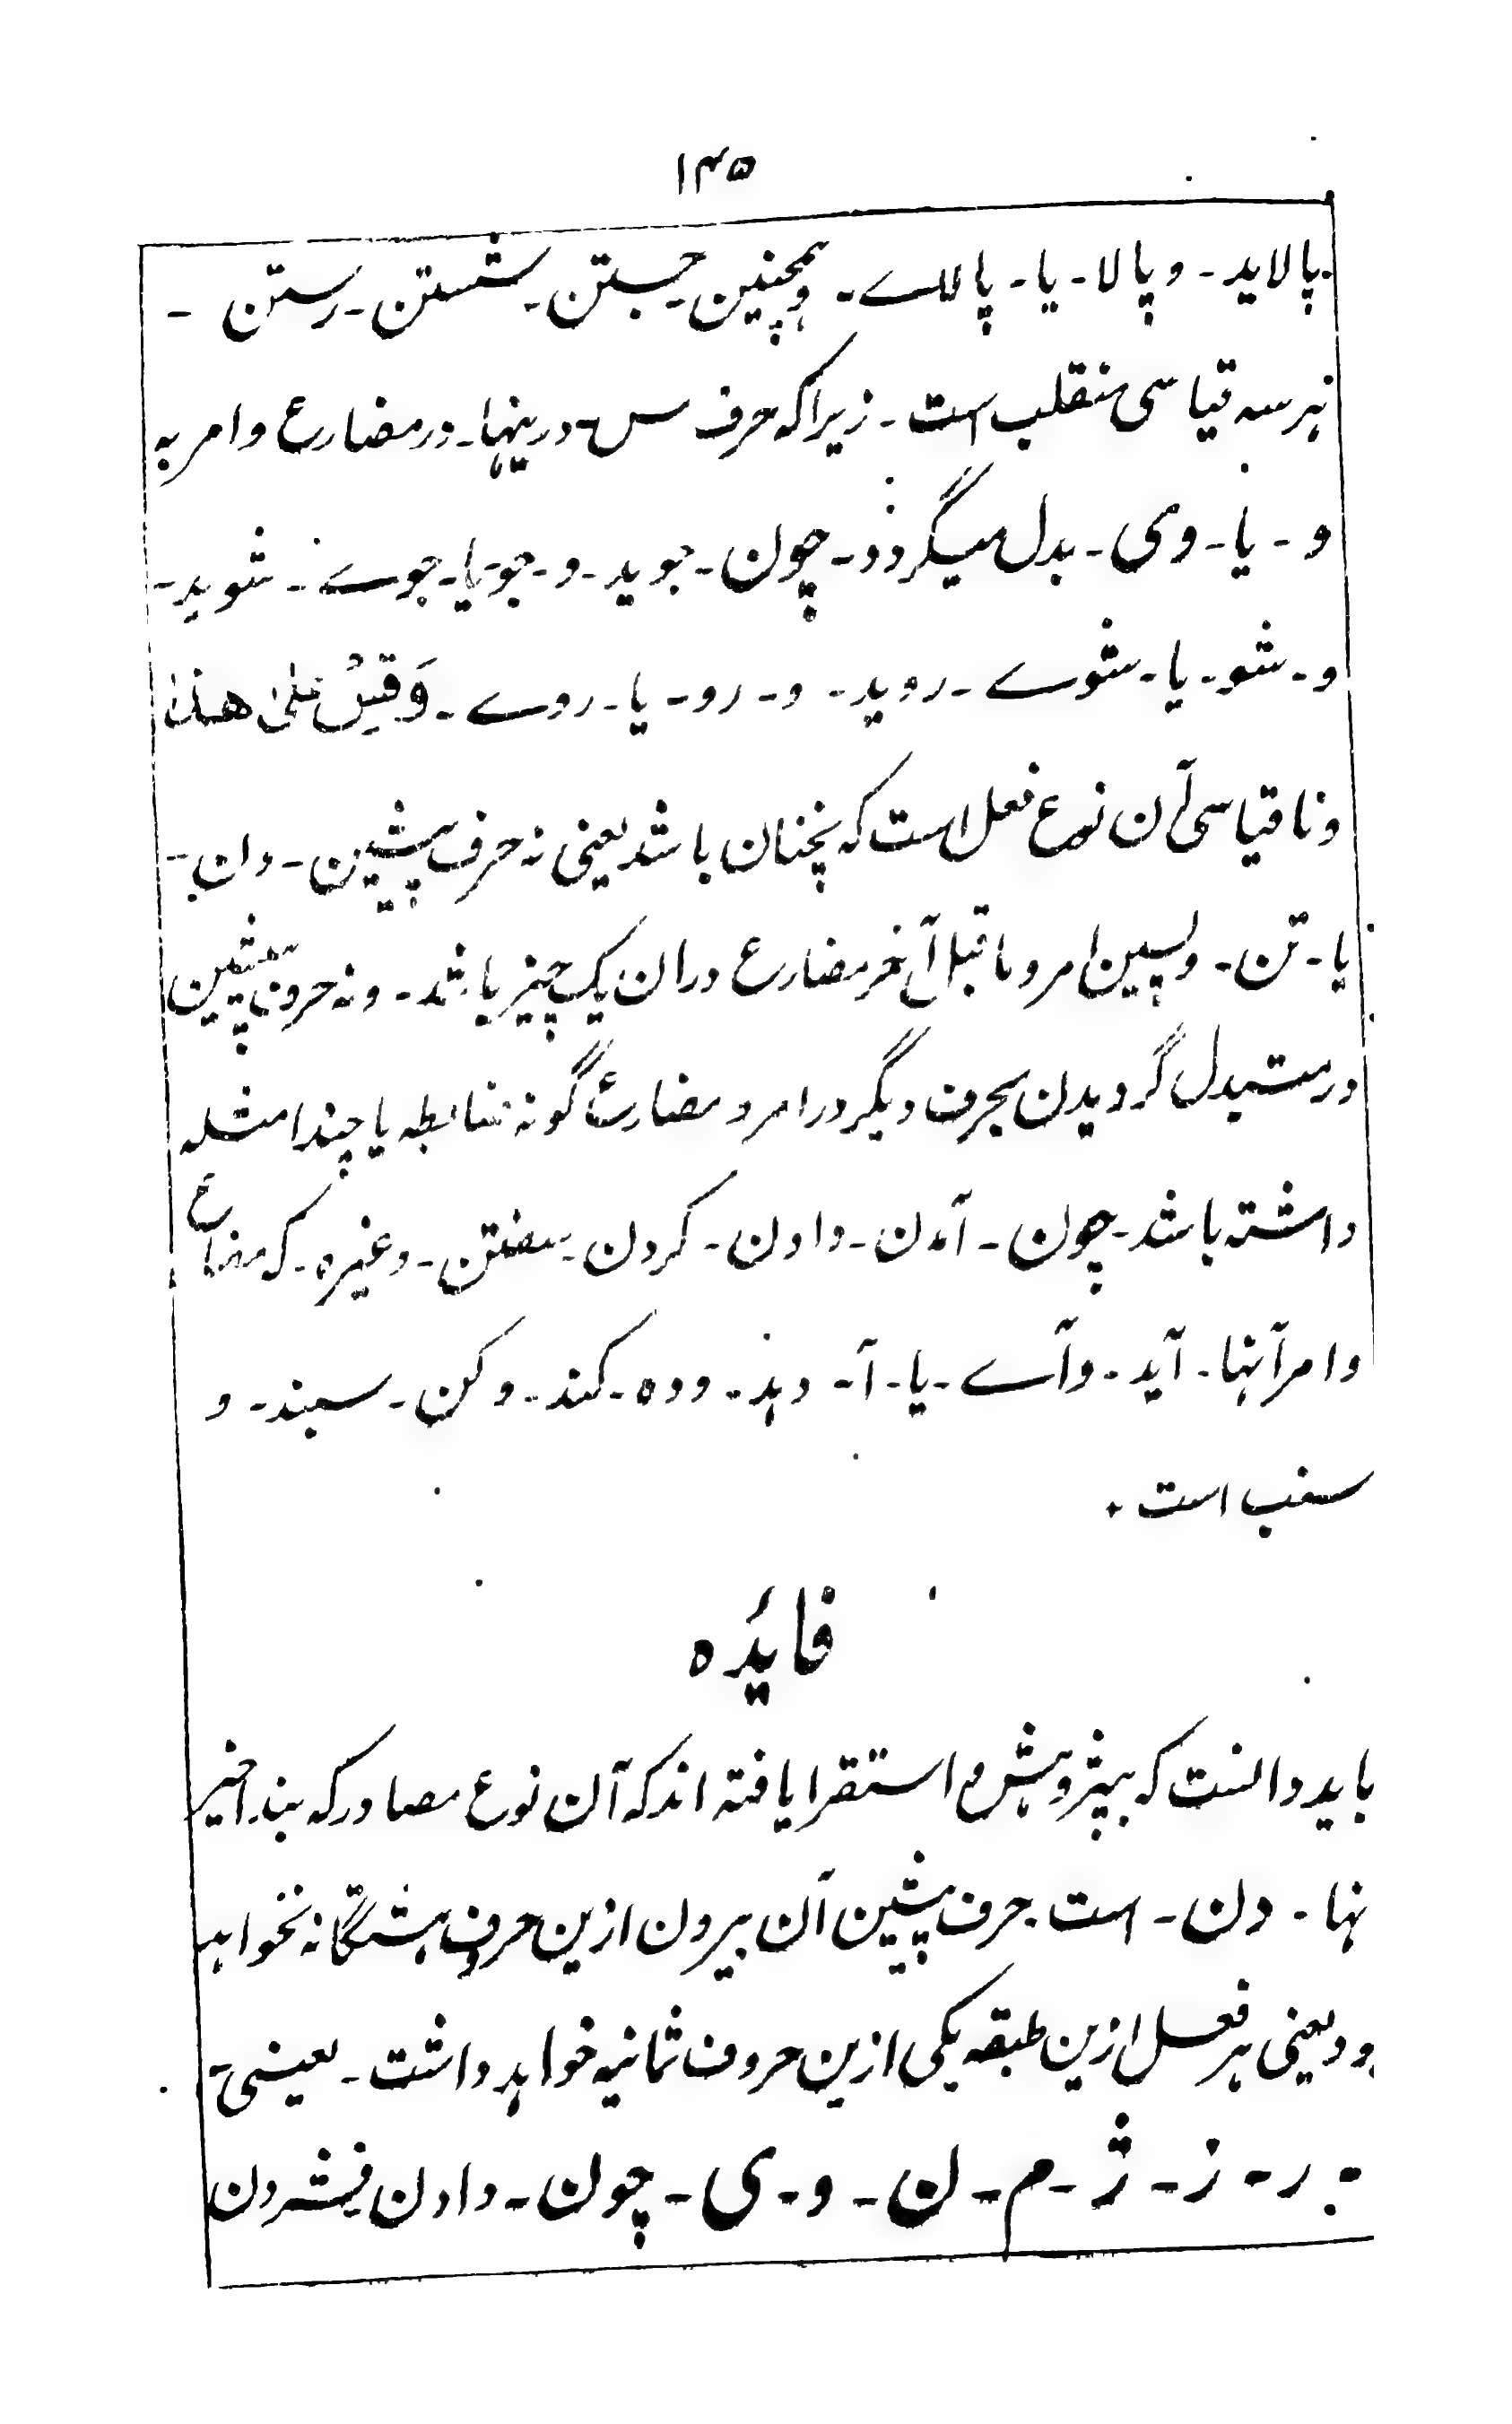 ۱۴۵
پالاید - و پالا - یا - پالاے - وہمچنین جستن - شستن - رستن -
نہرسہ قیاسی منقلب است - زیراکہ حرف س - درینہا - در مضارع و امر بہ
و - یا - وی - بدل میگردد - چون - جوید - و - جو - یا - جوے - شوید -
و - شو - یا - شوے - روید - و - رو - یا - روے - وَقِسْ عَلیٰ هٰذا
و نا قیاسی آن نوع فعل است کہ نچنان باشد یعنی نہ حرف پیشین - دن -
یا - تن - و پسین امر و ماقبل آخر مضارع دران یک چیز باشد - و نہ حروف پیشین
در متبدل گردیدن بحرف دیگر در امر و مضارع گونہ ضابطہ یا چند امثلہ
داشتہ باشد - چون - آمدن - دادن - کردن - سفتن - وغیرہ - کہ مضارع
و امر آنہا - آید - و آے - یا - آ - دہد - و دہ - کند - و کن - سنبد - و
سنب است ۰
فایدہ
باید دانست کہ بپژوہش و استقرا یافتہ اند کہ آن نوع مصادر کہ بند اخیر
نہا - دن - است - حرف پیشین آن بیرون ازین حروف ہشتگانہ نخواہد
ود یعنی ہر فعل ازین طبقہ یکی ازین حروف ثمانیہ خواہد داشت - یعنی -
ر - ز - ژ - م - ن - و - ی - چون - دادن فشردن